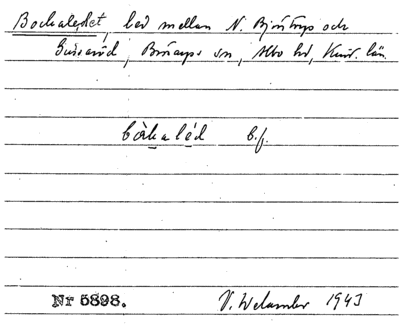 Bockaledet, led mellan N. Björstorp och
Gussaröd, Brösarps sn, Albo hd, Krist. län.
bòkalèd b.f.
Nr 5898.
V. Welander 1943